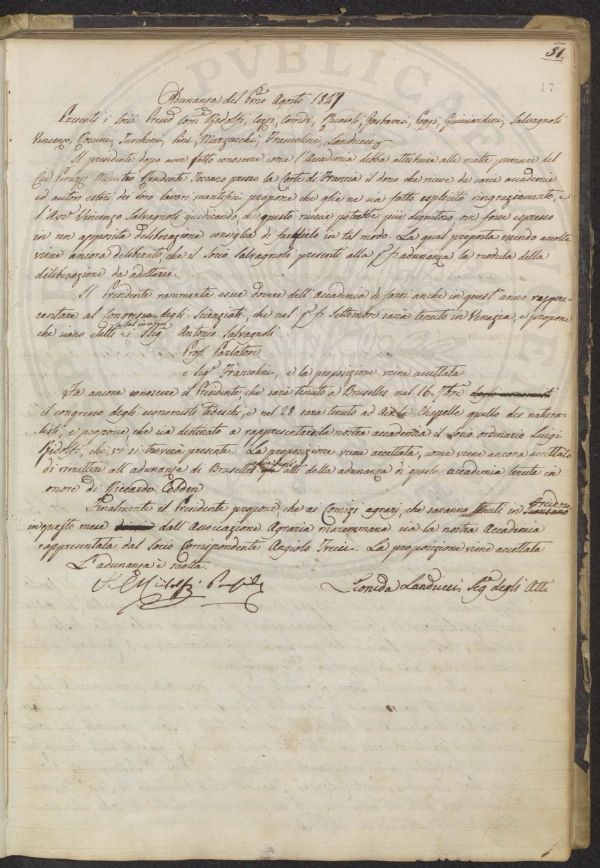 31.
17
Adunanza del 6rio Agosto 1847
Presenti i Socj Presid. Com. Ridolfi, Corsi, Corridi, Busacca, Poggi, Guicciardini, Salvagnoli
Vincenzo, Turchini, Marzucchi, Francolini, Landucci
Il presidente dopo aver fatto conoscere come l'Accademia debba attribuire alle molte premure del
Cav. Ministro Residente Toscano presso la Corte di Francia il dono che riceve da varie accademie
ed autori esteri dei loro lavori scientifici propone che gliene sia fatto esplicito ringraziamento, e
l'Avv. Vincenzo Salvagnoli giudicando che questo riuscir potrebbe più dignitoso ove fosse espresso
in una apposita deliberazione consiglia di farselo in tal modo. La qual proposta essendo accolta
viene ancora deliberato che il Socio Salvagnoli presenti alla pr. f. adunanza la modula della
deliberazione da adottare.
Il Presidente rammenta esser dovere dell'accademia di farsi anche in quest'anno rappre-
sentare al Congresso degli Scienziati, che nel pr. f. Settembre sarà tenuto in Venezia, e propone
che siano eletti a tal uopo i Sigg. Antonio Salvagnoli
Prof. Parlatore
e Sig. Francolini, e la proposizione viene accettata
Fa ancora conoscere il Presidente che sarà tenuto a Bruselles nel 16 7bre
il congresso degli economisti tedeschi, e nel 28 sarà tenuto ad Aix la Chapelle quello dei natura-
listi, e propone che sia destinato a rappresentare la nostra accademia il Socio ordinario Luigi
Ridolfi, che vi si troverà presente. La proposizione viene accettata, come viene ancora accettato
di rimettere all'adunanza di Bruselles copia degli atti della adunanza di questa accademia tenuta in
onore di Riccardo Cobden
Finalmente il Presidente propone che ai Comizj agrarj, che saranno tenuti in
in questo mese dall'Associazione Agraria maremmana sia la nostra Accademia
rappresentata dal Socio Corrispondente Angiolo Grecii. La proposizione viene accettata
L'adunanza è sciolta.
C. Ridolfi Presid.
Leonida Landucci Seg. degli Atti